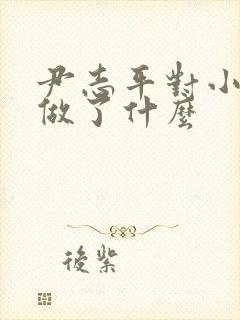 尹志平對小
做了什麼
後紫